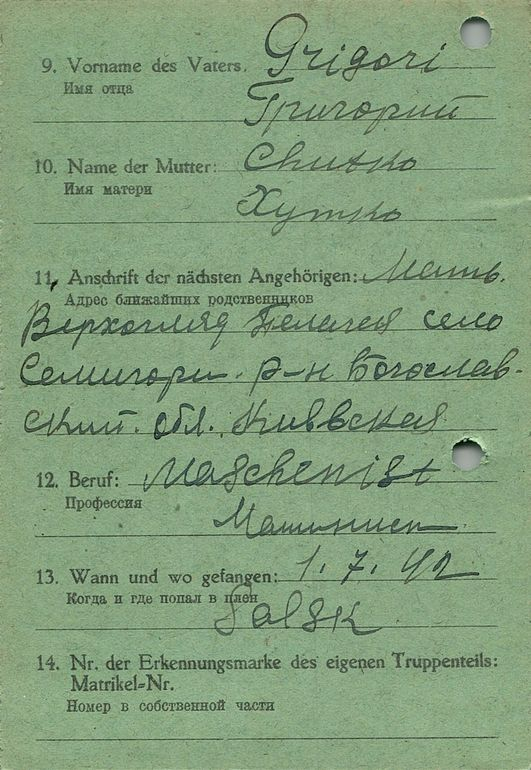 9. Vorname des Vaters. Grigori
Имя отца
Григорий
10. Name der Mutter: Chutko
Имя матери
Хутко
11. Anschrift der nächsten Angehörigen: Мать.
Адрес ближайших родственников
Верхогляд Пелагея село
Семигори. р-н Богослав-
ский. обл. Киевская
12. Beruf: Maschenist
Профессия
Машинист
13. Wann und wo gefangen: 1. 7. 42
Когда и где попал в плен
Salsk
14. Nr. der Erkennungsmarke des eigenen Truppenteils:
Matrikel-Nr.
Номер в собственной части